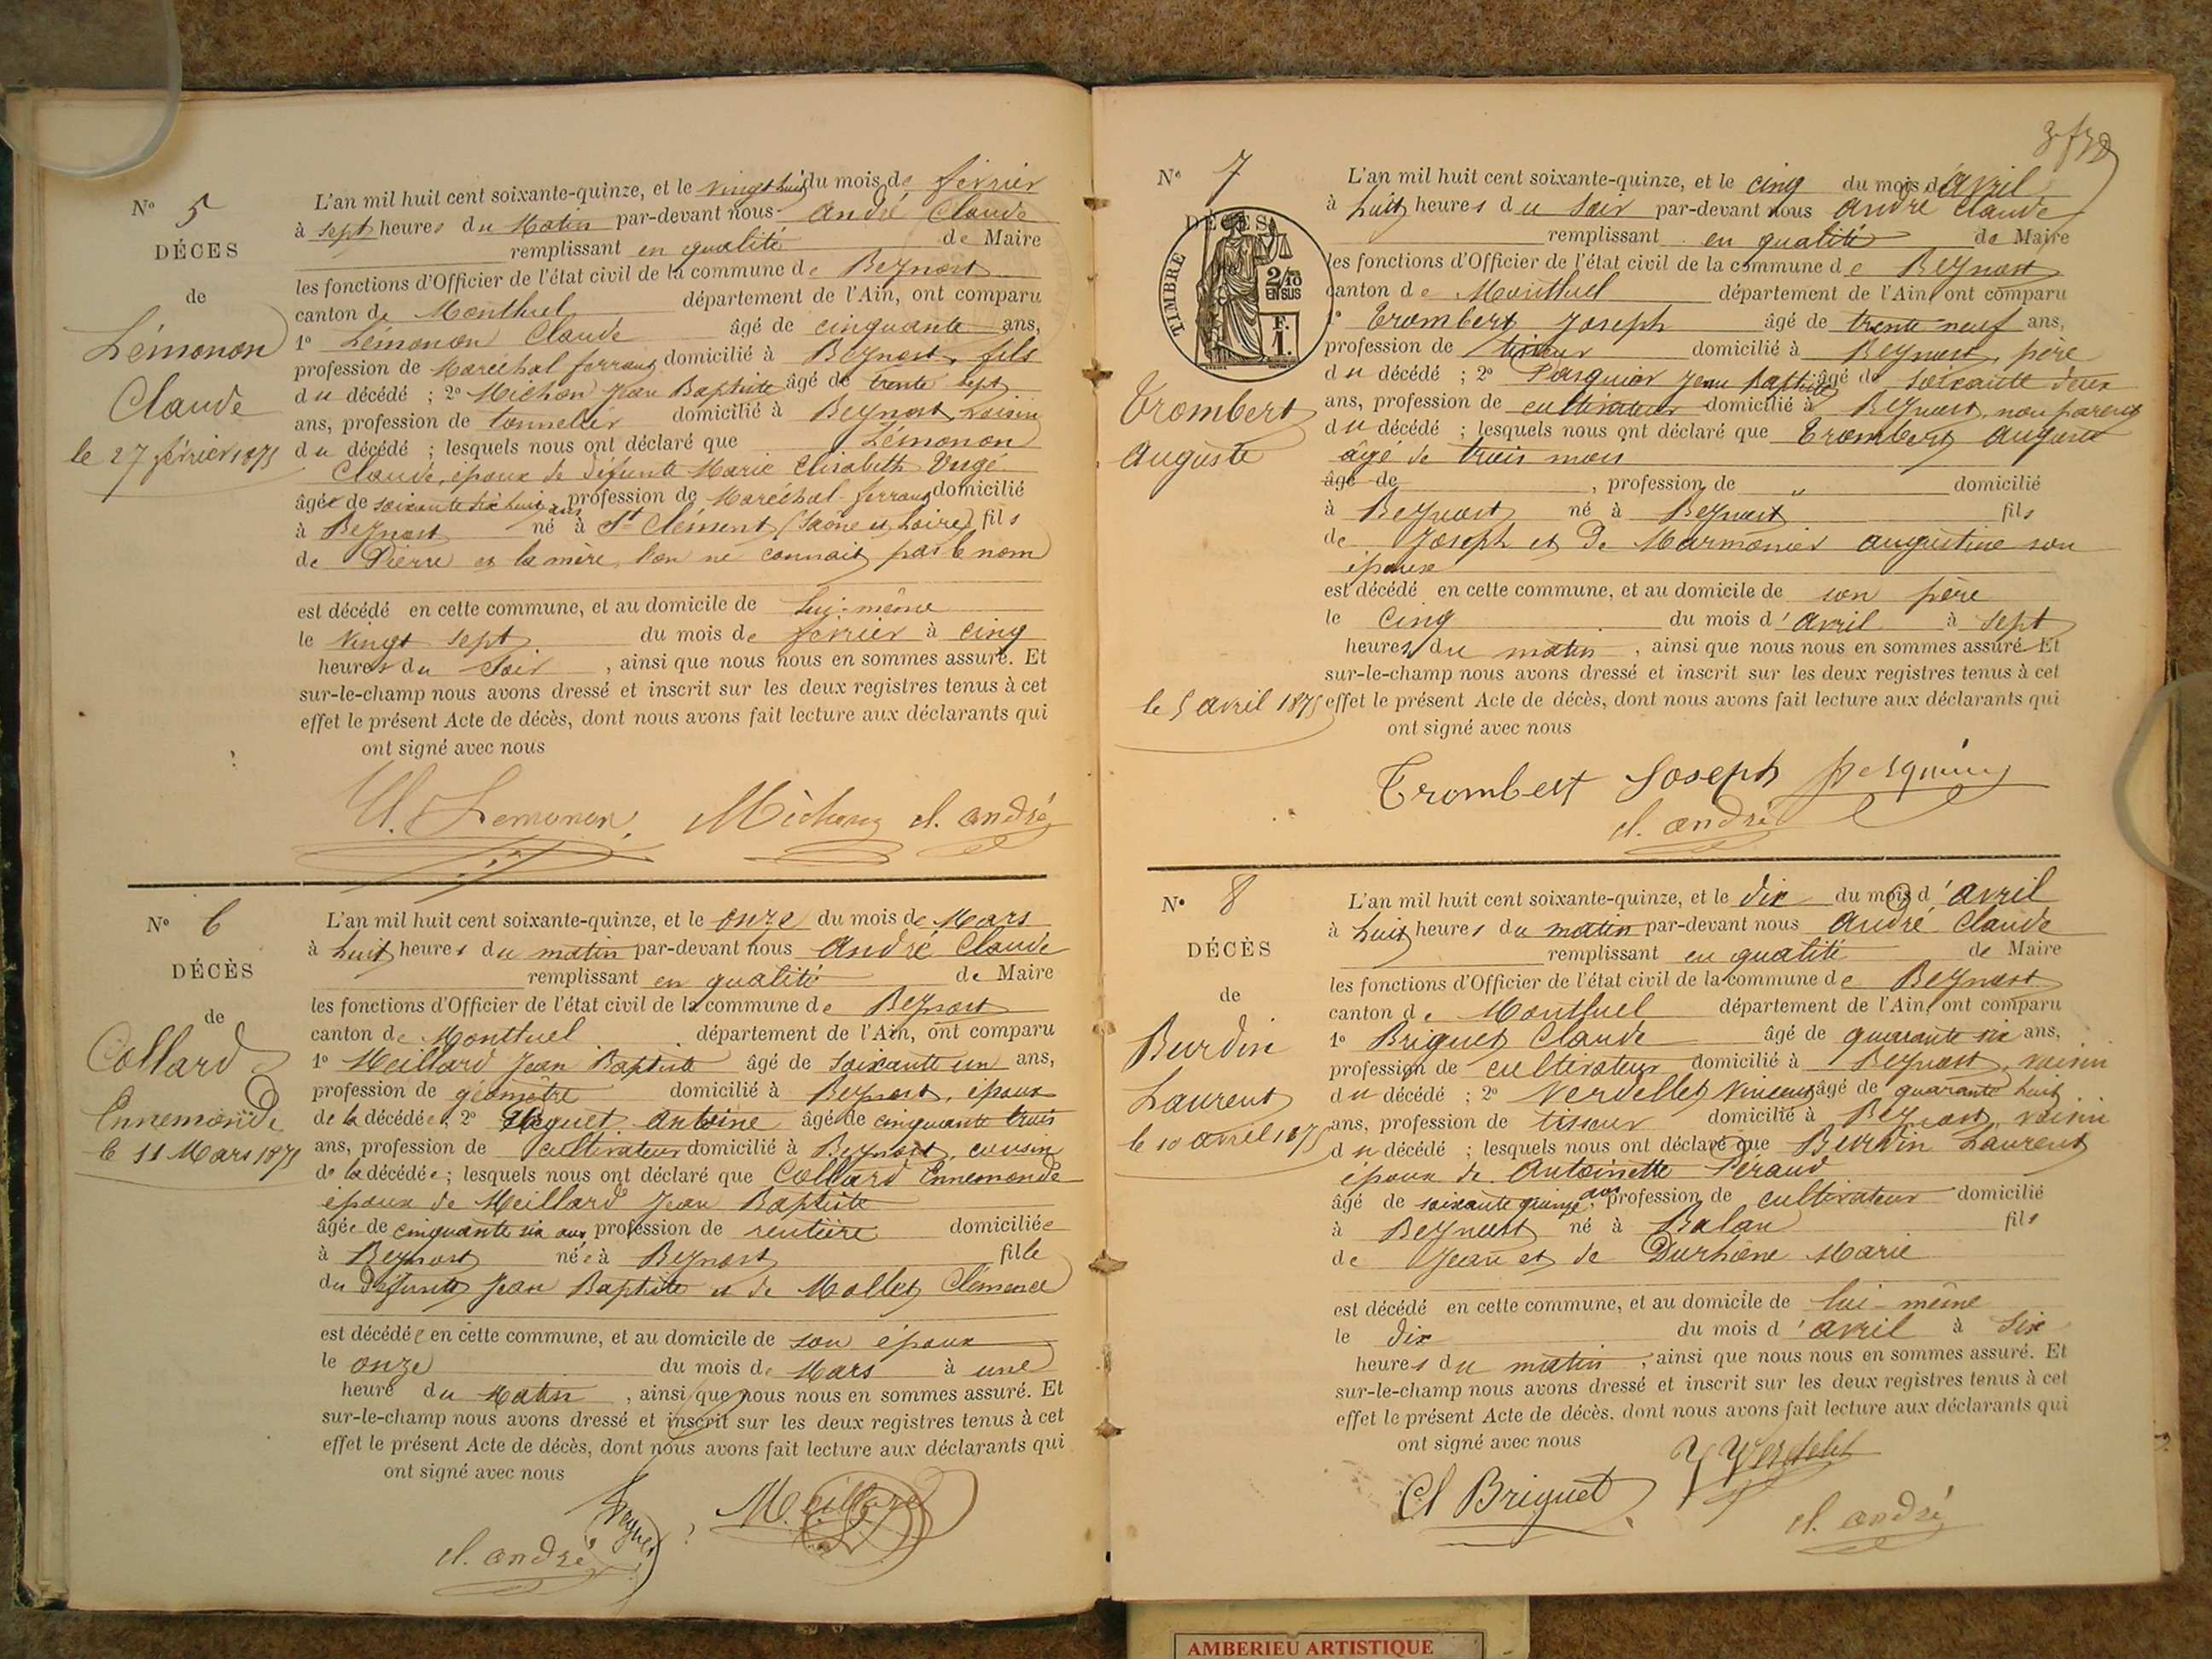 N° 5
DÉCES
de
Lémonon
Claude
le 27 février 1875
L'an mil huit cent soixante-quinze, et le vingt huit du mois de février
à sept heures du Matin par-devant nous André Claude
remplissant en qualité de Maire
les fonctions d'Officier de l'état civil de la commune de Beynost
canton de Montluel département de l'Ain, ont comparu
1° Lémonon Claude âgé de cinquante ans,
profession de Maréchal ferrant domicilié à Beynost, fils
du décédé ; 2° Michon Jean Baptiste âgé de trente sept
ans, profession de tonnelier domicilié à Beynost voisin
du décédé ; lesquels nous ont déclaré que Lémonon
Claude, époux de défunte Marie Elisabeth
âgé de soixante dix huit ans profession de Maréchal-ferrant domicilié
à Beynost né à St Clément (Saône et Loire) fils
de Pierre et la mère, l'on ne connait pas le nom
est décédé en cette commune, et au domicile de lui-même
le vingt sept du mois de février à cinq
heures du Soir, ainsi que nous nous en sommes assuré. Et
sur-le-champ nous avons dressé et inscrit sur les deux registres tenus à cet
effet le présent Acte de décès, dont nous avons fait lecture aux déclarants qui
ont signé avec nous
Cl. Lemonon Michon cl. andré
N° 6
DÉCÈS
de
Collard
Ennemonde
le 11 Mars 1875
L'an mil huit cent soixante-quinze, et le onze du mois de Mars
à huit heures du matin par-devant nous André Claude
remplissant en qualité de Maire
les fonctions d'Officier de l'état civil de la commune de Beynost
canton de Montluel département de l'Ain, ont comparu
1° Meillard Jean Baptiste âgé de soixante un ans,
profession de géomètre domicilié à Beynost, époux
de la décédée, 2° Antoine âgé de cinquante trois
ans, profession de cultivateur domicilié à Beynost, cousin
de la décédée ; lesquels nous ont déclaré que Collard Ennemonde
epoux de Meillard Jean Baptiste
âgée de cinquante six ans profession de rentière domiciliée
à Beynost née à Beynost fille
du défunt Jean Baptiste et de Mollet Clémence
est décédée en cette commune, et au domicile de son époux
le onze du mois de Mars à une
heure du Matin, ainsi que nous nous en sommes assuré. Et
sur-le-champ nous avons dressé et inscrit sur les deux registres tenus à cet
effet le présent Acte de décès, dont nous avons fait lecture aux déclarants qui
ont signé avec nous
Meillard
cl. andré
N° 7
DÉCÈS
TIMBRE
2/10
EN SUS
F.
1.
Trombert
Auguste
le 5 avril 1875
L'an mil huit cent soixante-quinze, et le cinq du mois d'Avril
à huit heures du soir par-devant nous André Claude
remplissant en qualité de Maire
les fonctions d'Officier de l'état civil de la commune de Beynost
canton de Montluel département de l'Ain, ont comparu
1° Trombert Joseph âgé de trente neuf ans,
profession de tisseur domicilié à Beynost, père
du décédé ; 2° Pasquier Jean Baptiste âgé de soixante deux
ans, profession de cultivateur domicilié à Beynost, non parent
du décédé ; lesquels nous ont déclaré que Trombert Auguste
âgé de trois mois
âgé de , profession de " domicilié
à Beynost né à Beynost fils
de Joseph et de Marmonier Augustine son
épouse
est décédé en cette commune, et au domicile de son père
le Cinq du mois d'avril à sept
heures du matin, ainsi que nous nous en sommes assuré. Et
sur-le-champ nous avons dressé et inscrit sur les deux registres tenus à cet
effet le présent Acte de décès, dont nous avons fait lecture aux déclarants qui
ont signé avec nous
Trombert Joseph
cl. andré
N° 8
DÉCÈS
de
Burdin
Laurent
le 10 avril 1875
L'an mil huit cent soixante-quinze, et le dix du mois d'avril
à huit heures du matin par-devant nous André Claude
remplissant en qualité de Maire
les fonctions d'Officier de l'état civil de la commune de Beynost
canton de Montluel département de l'Ain, ont comparu
1° Briguet Claude âgé de quarante six ans,
profession de cultivateur domicilié à Beynost, voisin
du décédé ; 2° Verdellet Vincent âgé de quarante huit
ans, profession de tisseur domicilié à Beynost, voisin
du décédé ; lesquels nous ont déclaré que Burdin Laurent
époux de Antoinette Péraud
âgé de soixante quinze ans profession de cultivateur domicilié
à Beynost né à Balan fils
de Jean et de Marie
est décédé en cette commune, et au domicile de lui-même
le dix du mois d'avril à six
heures du matin, ainsi que nous nous en sommes assuré. Et
sur-le-champ nous avons dressé et inscrit sur les deux registres tenus à cet
effet le présent Acte de décès, dont nous avons fait lecture aux déclarants qui
ont signé avec nous
Cl Briguet
cl. andré
AMBERIEU ARTISTIQUE